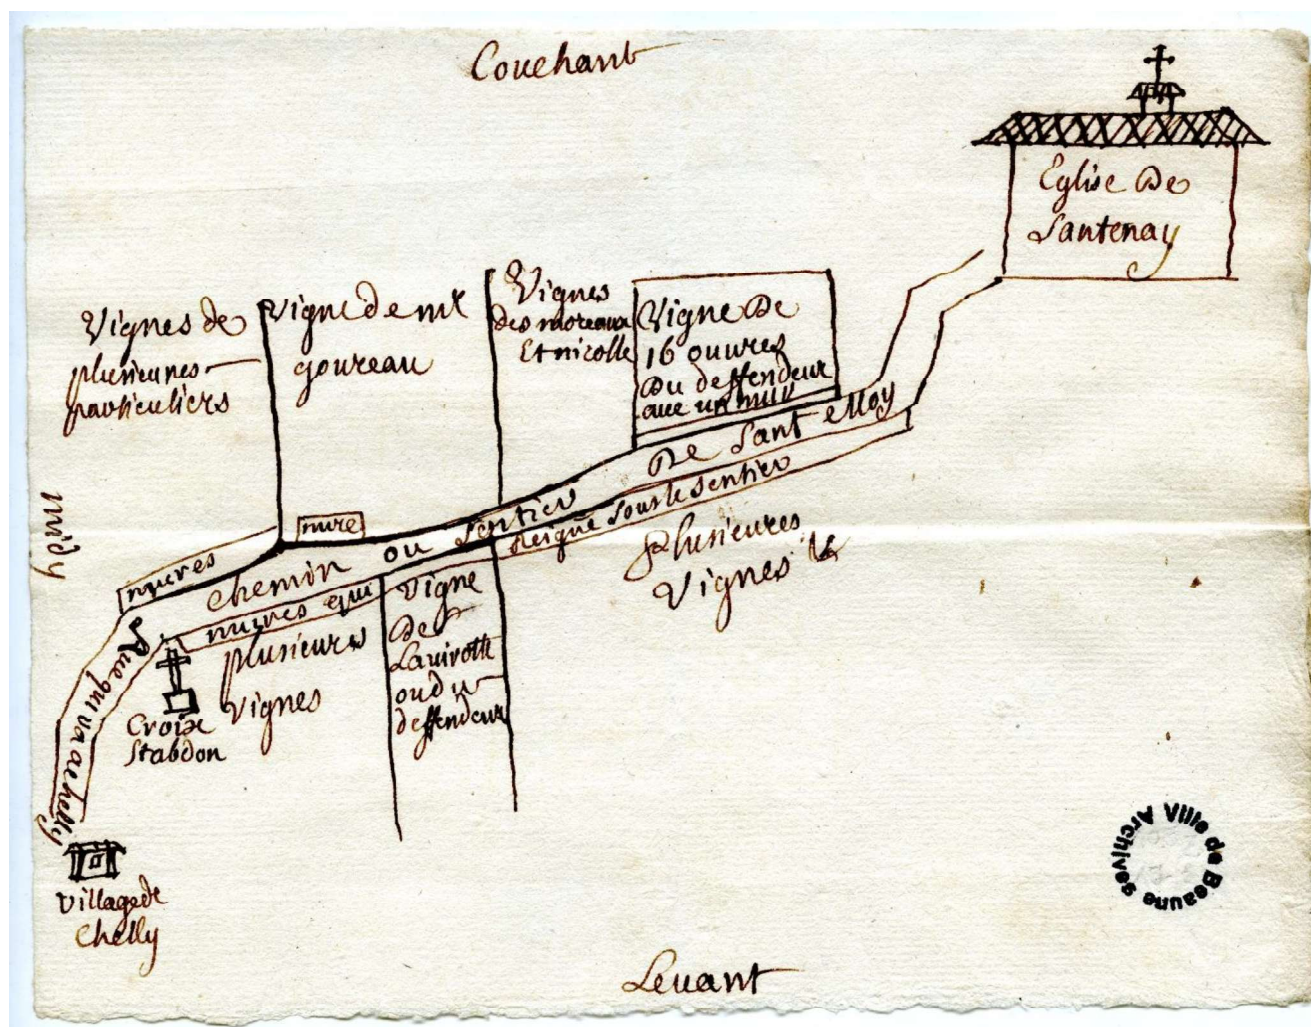 Couchant
Eglise De
Santenay
Vignes de
plusieures
particuliers
Vigne de mr
goureau
Vignes
des moreaux
Et nicolle
Vigne De
16 ouvres
Du deffendeur
avec un mur
midy
mures
mure
Chemin ou Sentier De Sant Moy
mures qui Reigne Sous le Sentier
Rue qui va a chelly
Croix
St abdon
plusieurs
Vignes
Vigne
De
Lavirotte
ou du
deffendeur
Plusieures
Vignes
Village de
Chelly
Levant
Archives Ville de Beaune